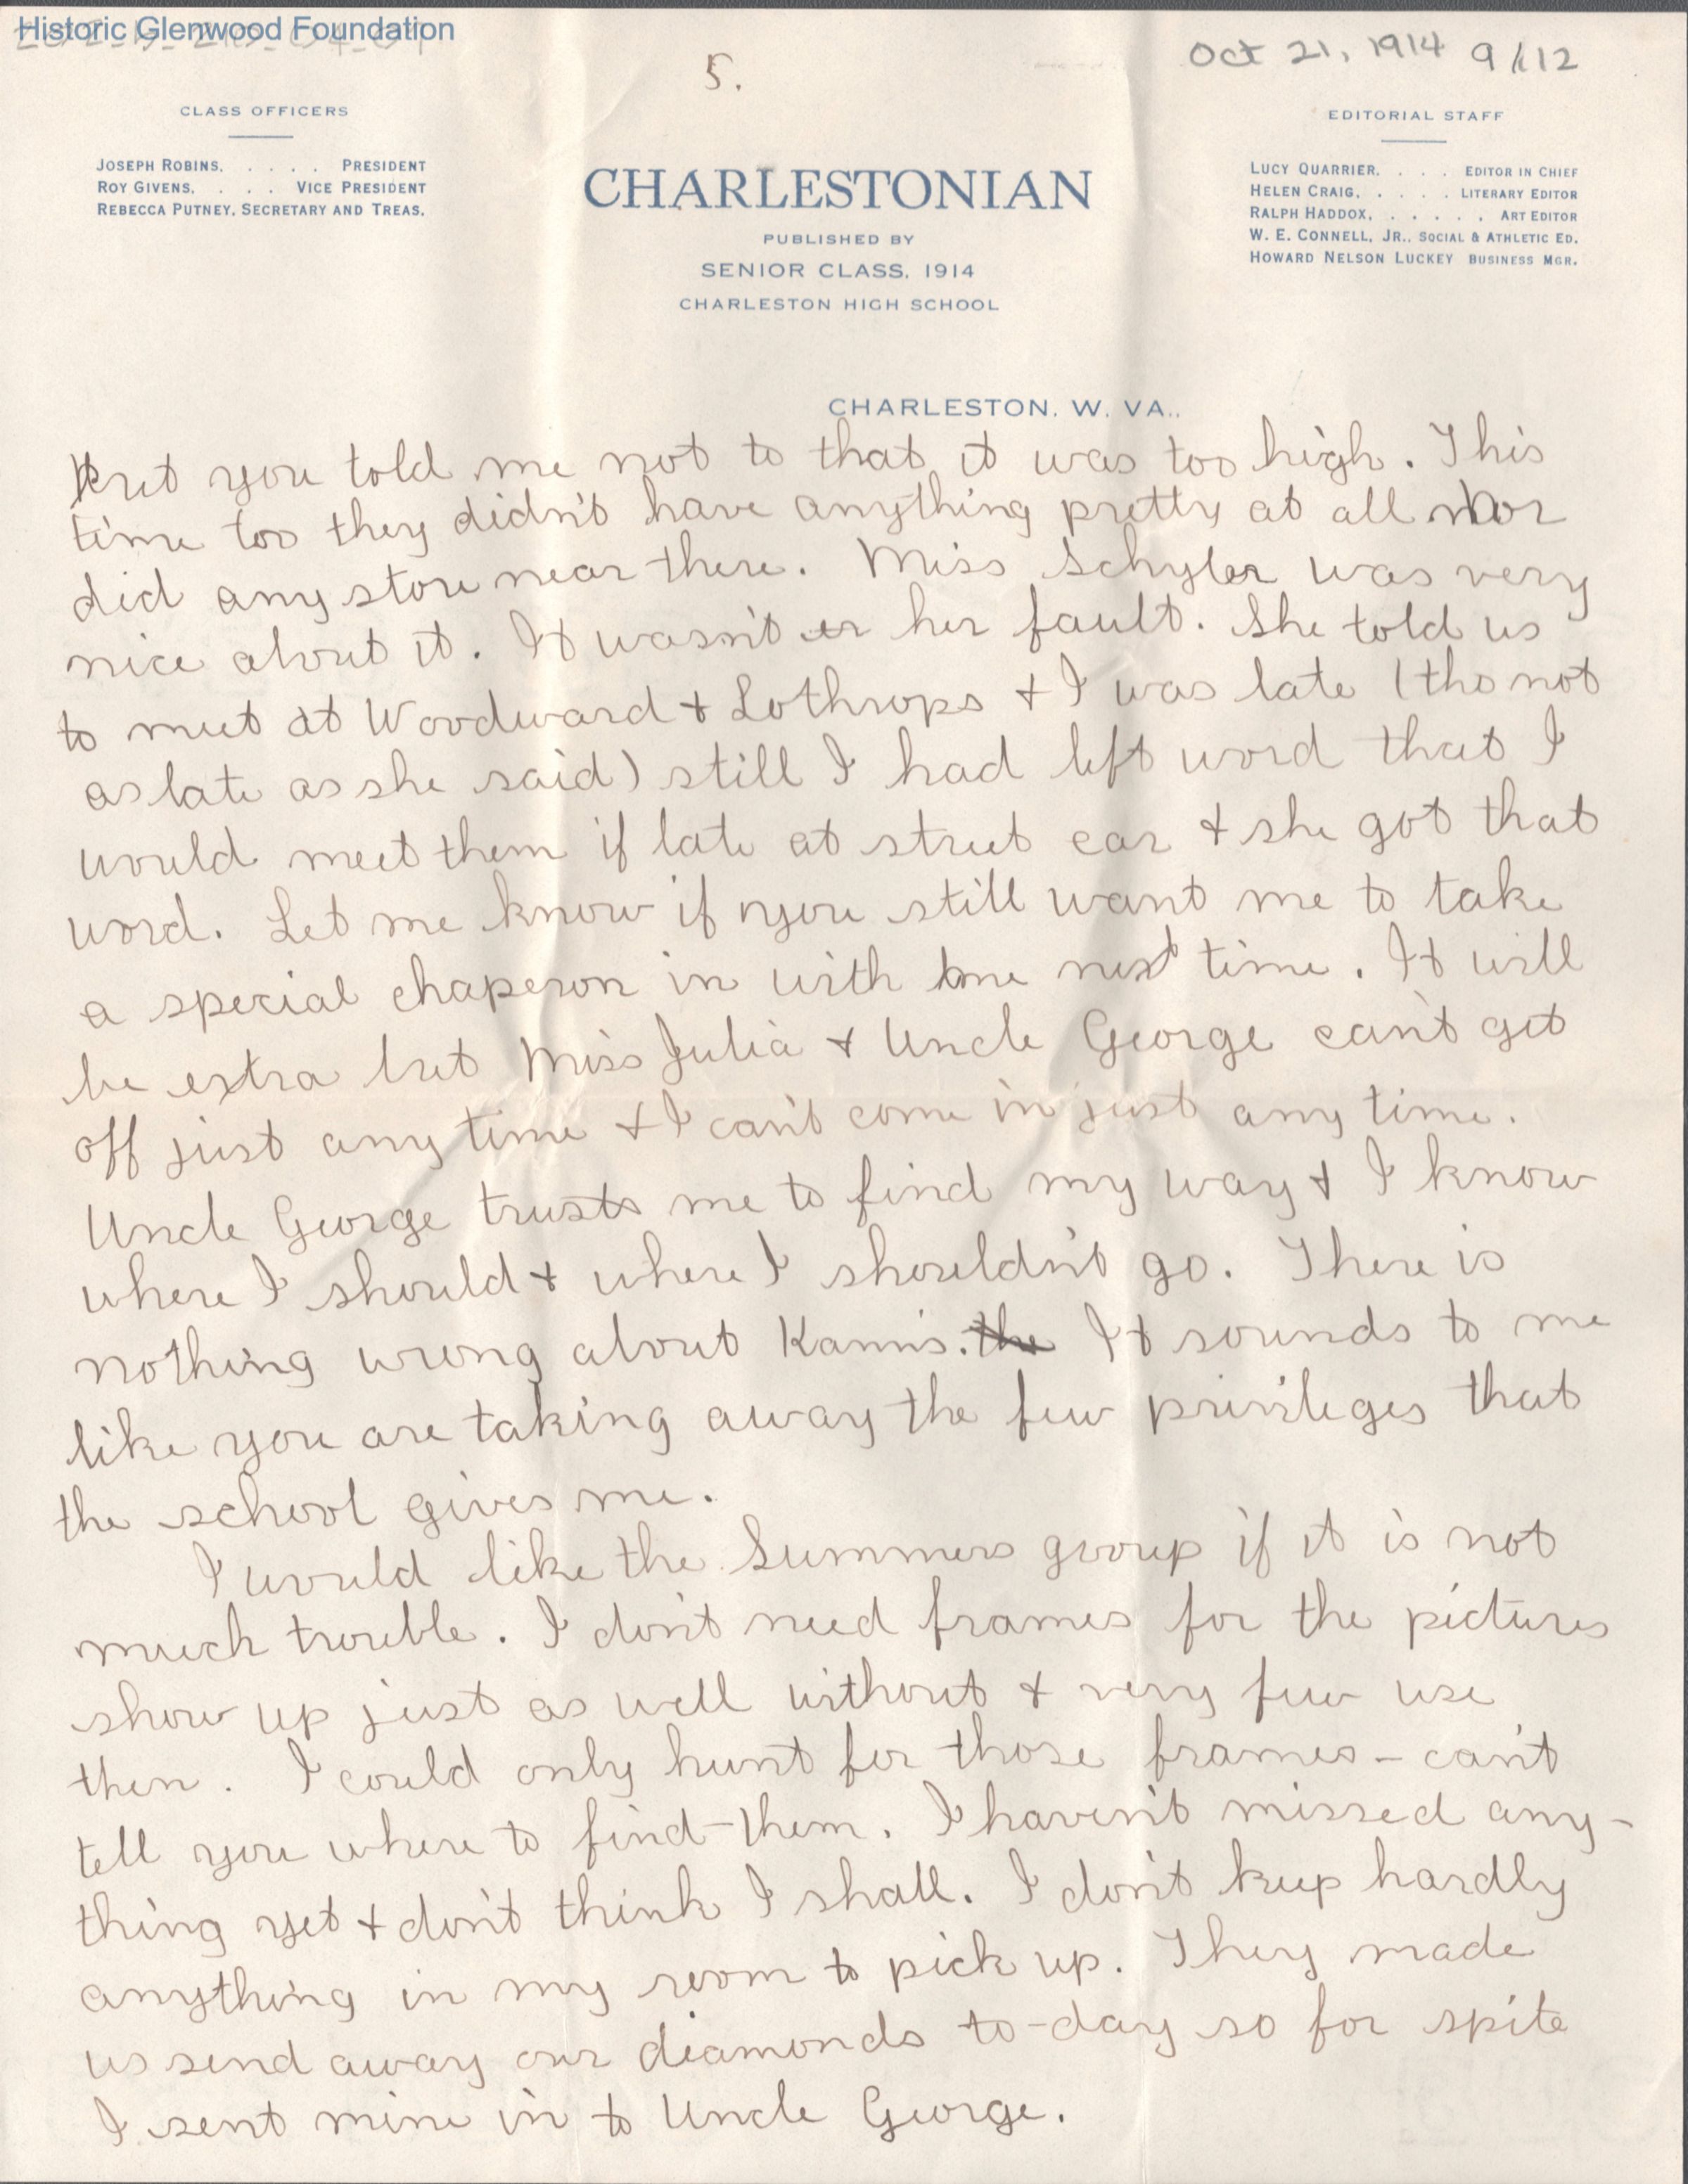 Historic Glenwood Foundation
5.
Oct 21, 1914 9/12
CLASS OFFICERS
JOSEPH ROBINS. . . . . PRESIDENT
ROY GIVENS. . . . VICE PRESIDENT
REBECCA PUTNEY. SECRETARY AND TREAS.
CHARLESTONIAN
PUBLISHED BY
SENIOR CLASS, 1914
CHARLESTON HIGH SCHOOL
EDITORIAL STAFF
LUCY QUARRIER. . . . EDITOR IN CHIEF
HELEN CRAIG. . . . . LITERARY EDITOR
RALPH HADDOX. . . . . . ART EDITOR
W. E. CONNELL, JR.. SOCIAL & ATHLETIC ED.
HOWARD NELSON LUCKEY BUSINESS MGR.
CHARLESTON, W. VA..
But you told me not to that it was too high. This
time too they didn't have anything pretty at all nor
did any store near there. Miss Schyler was very
nice about it. It wasn't er her fault. She told us
to meet at Woodward & Lothrops & I was late (tho not
as late as she said) still I had left word that I
would meet them if late at street car & she got that
word. Let me know if you still want me to take
a special chaperon in with me next time. It will
be extra but Miss Julia & Uncle George can't get
off just any time & I can't come in just any time.
Uncle George trusts me to find my way & I know
where I should & where I shouldn't go. There is
nothing wrong about Kann's. the It sounds to me
like you are taking away the few privileges that
the school gives me.
I would like the Summers group if it is not
much trouble. I don't need frames for the pictures
show up just as well without & very few use
them. I could only hunt for those frames - can't
tell you where to find them. I haven't missed any-
thing yet & don't think I shall. I don't keep hardly
anything in my room to pick up. They made
us send away our diamonds to-day so for spite
I sent mine in to Uncle George.